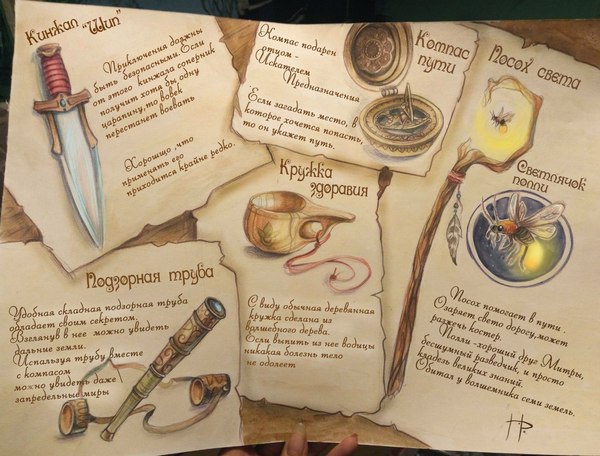 Кинжал "Шип"
Приключения должны
быть безопасными. Если
от этого кинжала соперник
получит хотя бы одну
царапину, то вовек
перестанет воевать
Хорошо, что
применять его
приходится крайне редко.
Компас
пути
Компас подарен
отцом -
Искателем
Предназначения
"Если загадать место, в
которое хочется попасть,
то он укажет путь.
Посох света
Светлячок
полли
Посох помогает в пути.
Озаряет свето дорогу,может
разжечь костер.
Полли -хороший друг Митры,
бесшумный разведчик, и просто
кладезь великих знаний.
Обитал у волшемника семи земель.
Кружка
здоравия
С виду обычная деревянная
кружка сделана из
волшебного дерева.
Если выпить из нее водицы
никакая болезнь тело
не одолеет
Подзорная труба
Удобная складная подзорная труба
обладает своим секретом.
Взглянув в нее можно увидеть
дальние земли.
Используя трубу вместе
с компасом
можно увидеть даже
запредельные миры
НР.